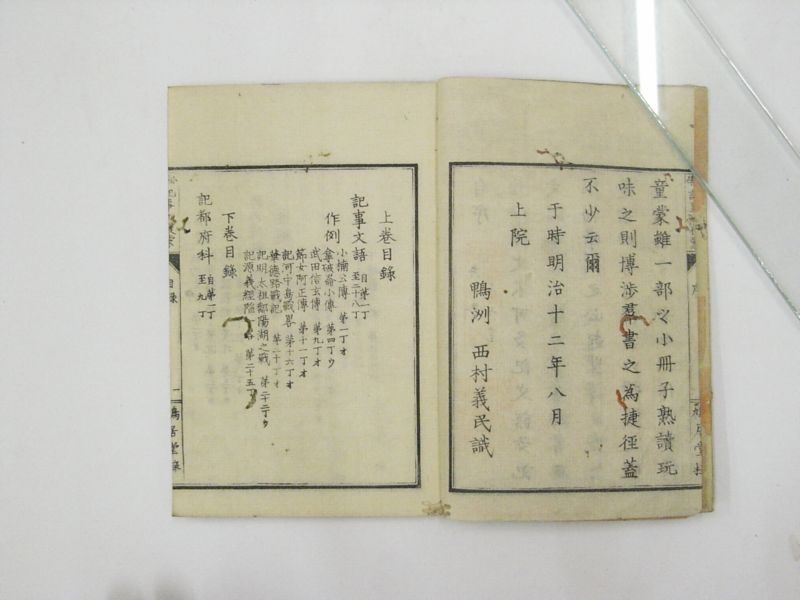 童蒙雖一部之小冊子熟讀玩
味之則博渉羣書之為捷徑蓋
不少云爾
于時明治十二年八月
上院
鴨洲 西村義民識
上卷目錄
記事文語 自第一丁 至二十八丁
作例
小楠公傳 第一丁オ
拿破崙小傳 第四丁ウ
武田信玄傳 第九丁オ
節女阿正傳 第十一丁オ
記河中島戰畧 第十六丁オ
第二十丁オ
記明太祖鄱陽湖之戰 第二十二丁ウ
記源義經 第二十五丁
下卷目錄
記都府科 自第一丁 至九丁
目錄